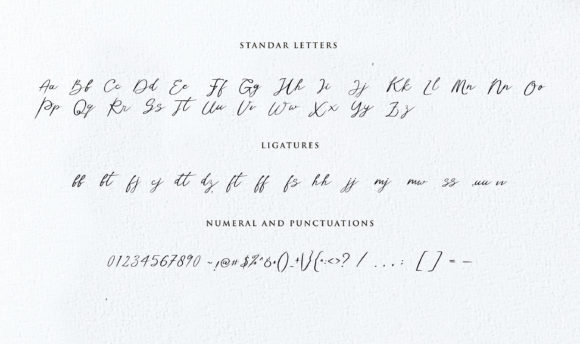 STANDAR LETTERS
Aa Bb Cc Dd Ee Ff Gg Hh Ii Jj Kk Ll Mm Nn Oo
Pp Qq Rr Ss Tt Uu Vv Ww Xx Yy Zz
LIGATURES
bb bt fj cj dt dz ft ff fs hh jj mj mw ss uu vv
NUMERAL AND PUNCTUATIONS
01234567890 ~,!@#$%^&*()_+|\}{":<>? / ...; [] = –